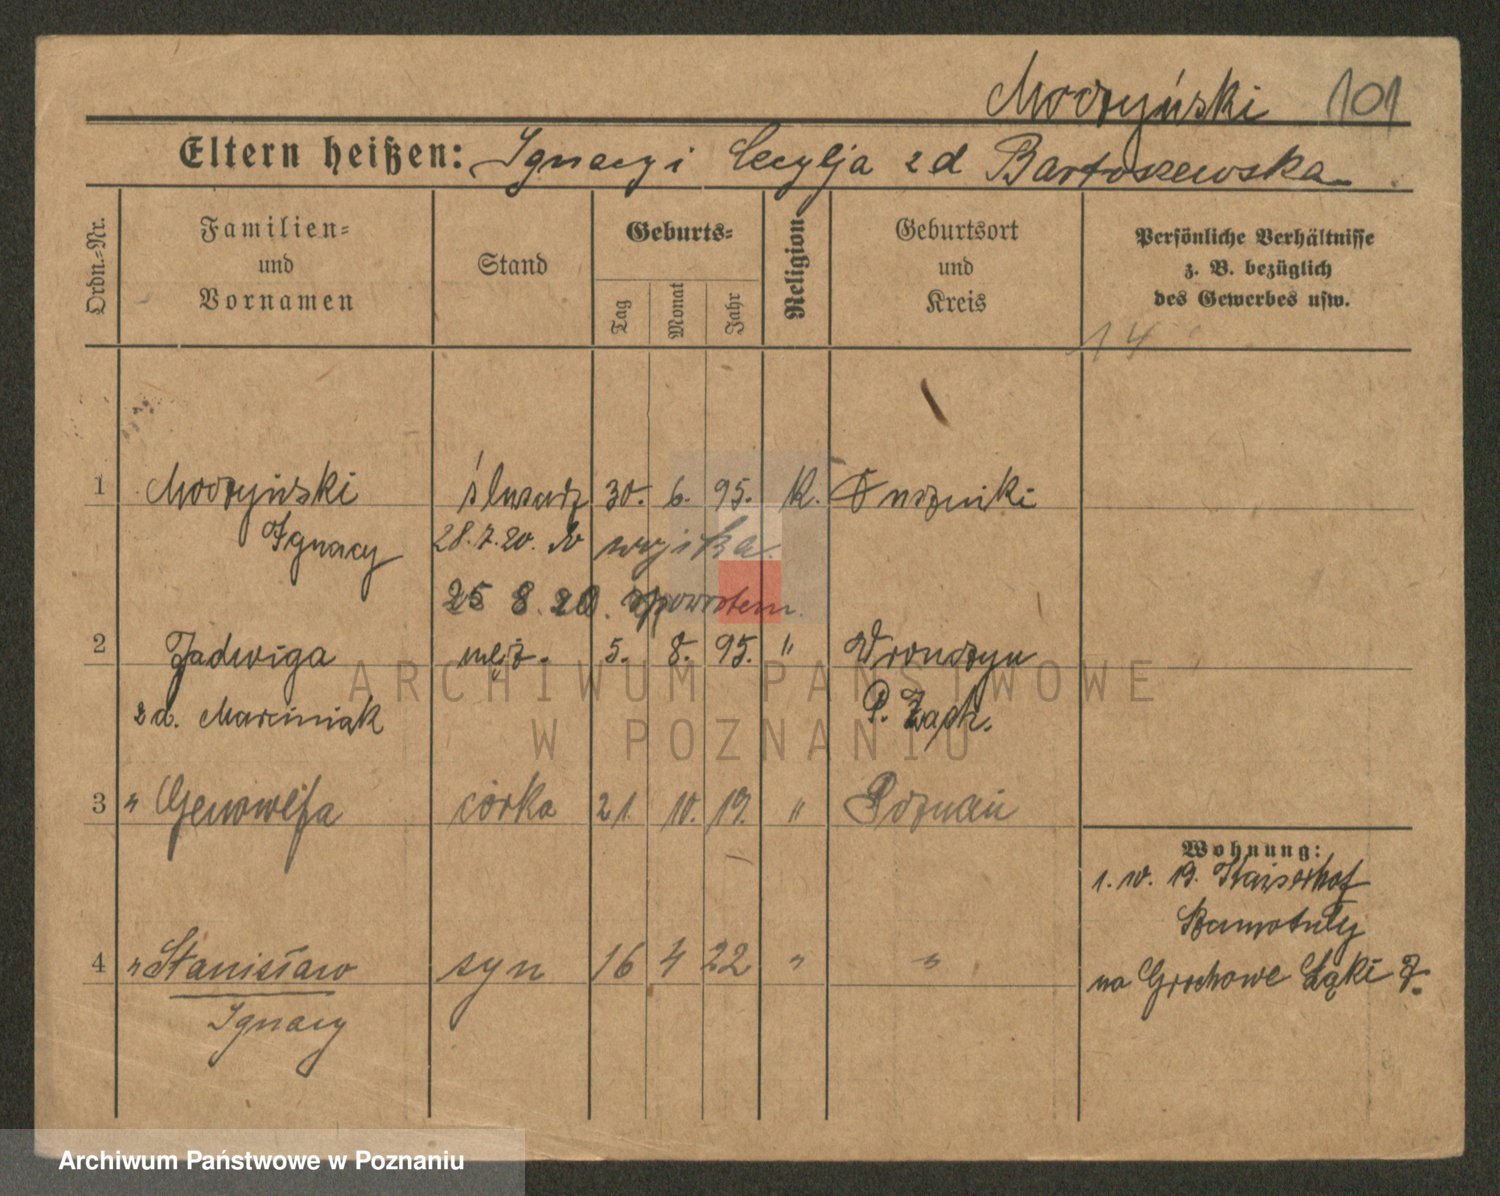 Modryński 101
Eltern heißen: Ignacy i Cecylja zd Bartoszewska
Ordn.-Nr.
Familien-
und
Vornamen
Stand
Geburts-
Tag
Monat
Jahr
Religion
Geburtsort
und
Kreis
Persönliche Verhältnisse
z. B. bezüglich
des Gewerbes usw.
14
1 Modryński ślusarz 30. 6. 95. k. Duszniki
Ignacy 28.7.20. do wojska.
25 8.20. spowrotem.
2 Jadwiga męż. 5. 8. 95. " Wronczyn
zd. Marciniak P. Zach.
3 " Genowefa córka 21. 10. 19. " Poznań
Wohnung:
1. 10. 19. Kaiserhof
Szamotuły
4 " Stanisław syn 16 4 22 " "
na Grochowe Łąki 7.
Ignacy
ARCHIWUM PAŃSTWOWE
W POZNANIU
Archiwum Państwowe w Poznaniu